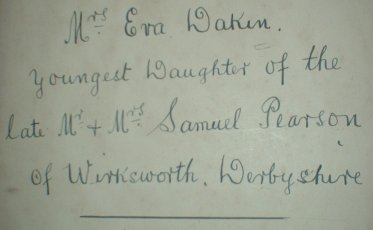 Mrs Eva Dakin.
Youngest Daughter of the
late Mr + Mrs Samuel Pearson
of Wirksworth, Derbyshire